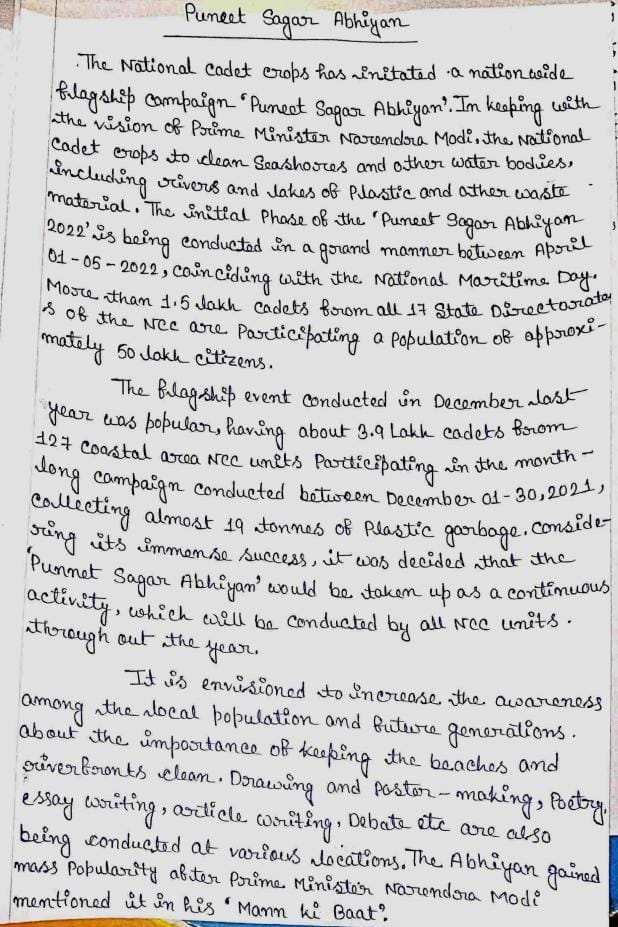 Puneet Sagar Abhiyan
The National cadet crops has initated a nationwide
flagship campaign 'Puneet Sagar Abhiyan'. In keeping with
the vision of Prime Minister Narendra Modi, the National
Cadet crops to clean Seashores and other water bodies,
including rivers and lakes of Plastic and other waste
material. The initial Phase of the 'Puneet Sagar Abhiyan
2022' is being conducted in a grand manner between April
01-05-2022, coinciding with the National Maritime Day.
More than 1.5 lakh cadets from all 17 State Directorate
s of the NCC are Participating a population of approxi-
mately 50 lakh citizens.
The flagship event conducted in December last
year was popular, having about 3.9 Lakh cadets from
127 coastal area NCC units Participating in the month-
long campaign conducted between December 01-30, 2021,
collecting almost 19 tonnes of Plastic garbage. Conside-
ring its immense success, it was decided that the
'Punnet Sagar Abhiyan' would be taken up as a continuous
activity, which will be conducted by all NCC units.
through out the year.
It is envisioned to increase the awareness
among the local population and future generations.
about the importance of keeping the beaches and
riverfronts clean. Drawing and Poster-making, Poetry,
essay writing, article writing, Debate etc are also
being conducted at various locations. The Abhiyan gained
mass Popularity after Prime Minister Narendra Modi
mentioned it in his 'Mann ki Baat'.